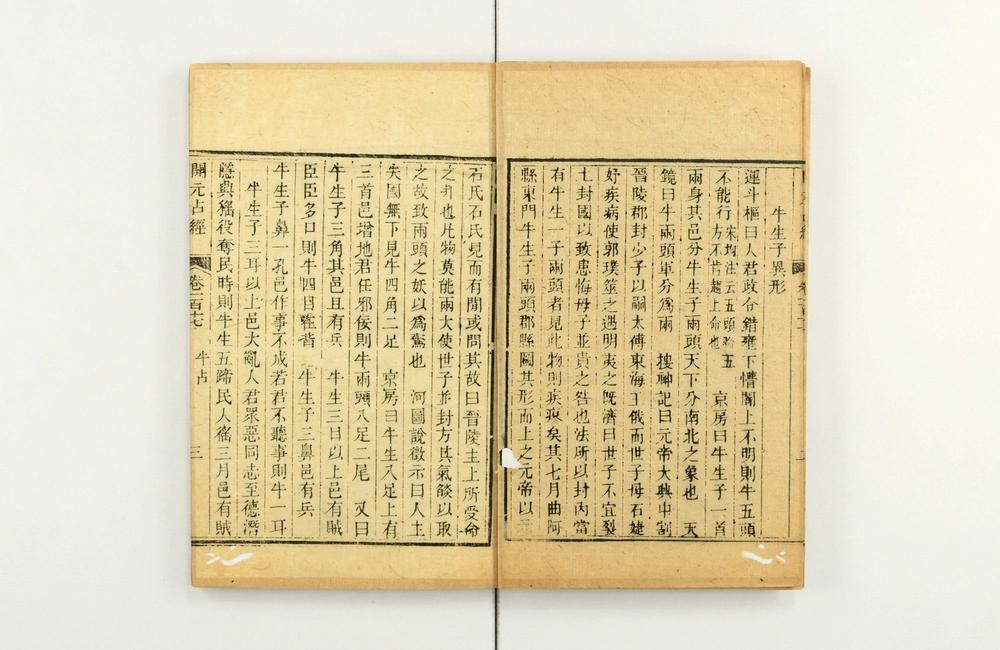 牛生子異形
運斗樞曰人君政令錯雍下懵闇上不明則牛五頭
不能行宋均注云五頭 五方不肯趨上命也 京房曰牛生子一首
兩身其邑分牛生子兩頭天下分南北之象也 天
鏡曰牛兩頭軍分爲兩 搜神記曰元帝大興中割
晉陵郡封少子以嗣太傅東海王俄而世子母石婕
妤疾病使郭璞筮之遇明夷之既濟曰世子不宜裂
土封國以致患悔母子並貴之咎也法所以封内當
有牛生一子兩頭者見此物則疾瘳矣其七月曲阿
縣東門牛生子兩頭郡縣圖其形而上之元帝以
石氏石氏見而有間或問其故曰晉陵主上所受命
之 也凡物莫能兩大使世子並封方其氣燄以取
之故致兩頭之妖以爲驚也 河圖說徵示曰人主
失國無下見牛四角二足 京房曰牛生八足上有
三首邑增地君任邪佞則牛兩頭八足二尾 又曰
牛生子三角其邑且有兵 牛生三目以上邑有賊
臣臣多口則牛四目 背 牛生子三鼻邑有兵
牛生子鼻一孔邑作事不成若君不聽事則牛一耳
牛生子三耳以上邑大亂人君眾惡同志至德潛
隱典猺役奪民時則牛生五蹄民人徭三月邑有賊
開元占經 卷一百十七 牛占 三